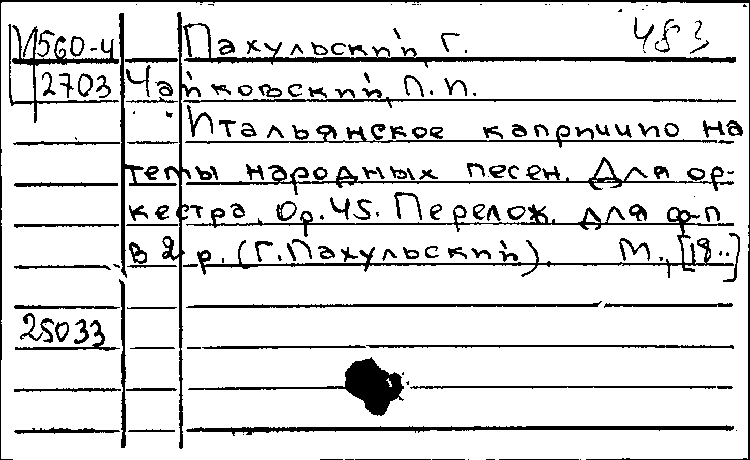 И560-4 Пахульский, Г. 483
2703 Чайковский, П. И.
Итальянское каприччио на
темы народных песен. Для ор-
кестра, Op. 45. Перелож. для ф-п
в 2 р. (Г. Пахульский). М., [18..]
25033